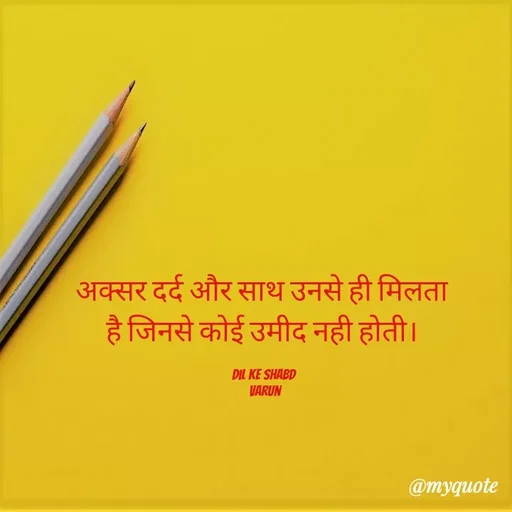 अक्सर दर्द और साथ उनसे ही मिलता
है जिनसे कोई उमीद नही होती।
DIL KE SHABD
VARUN
@myquote